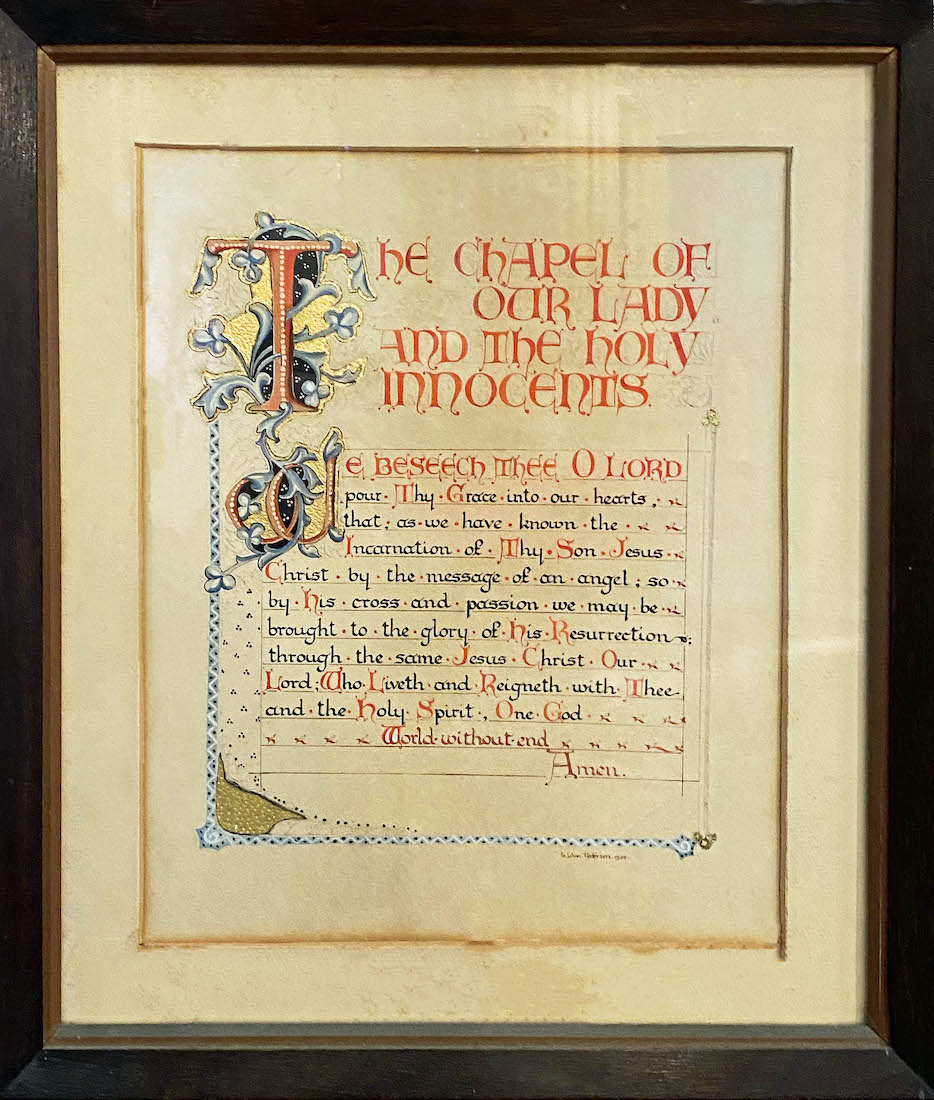 The Chapel of
Our Lady
and the Holy
Innocents.
We beseech Thee O Lord
pour · Thy · Grace · into · our · hearts ;
that ; as · we · have · known · the ·
Incarnation · of · Thy · Son · Jesus ·
Christ · by · the · message · of · an · angel ; so ·
by · His · cross · and · passion · we · may · be ·
brought · to · the · glory · of · His · Resurrection ;
through · the · same · Jesus · Christ · Our ·
Lord ; Who · Liveth · and · Reigneth · with · Thee
and · the · Holy · Spirit ·, One · God ·
World · without · end
Amen.